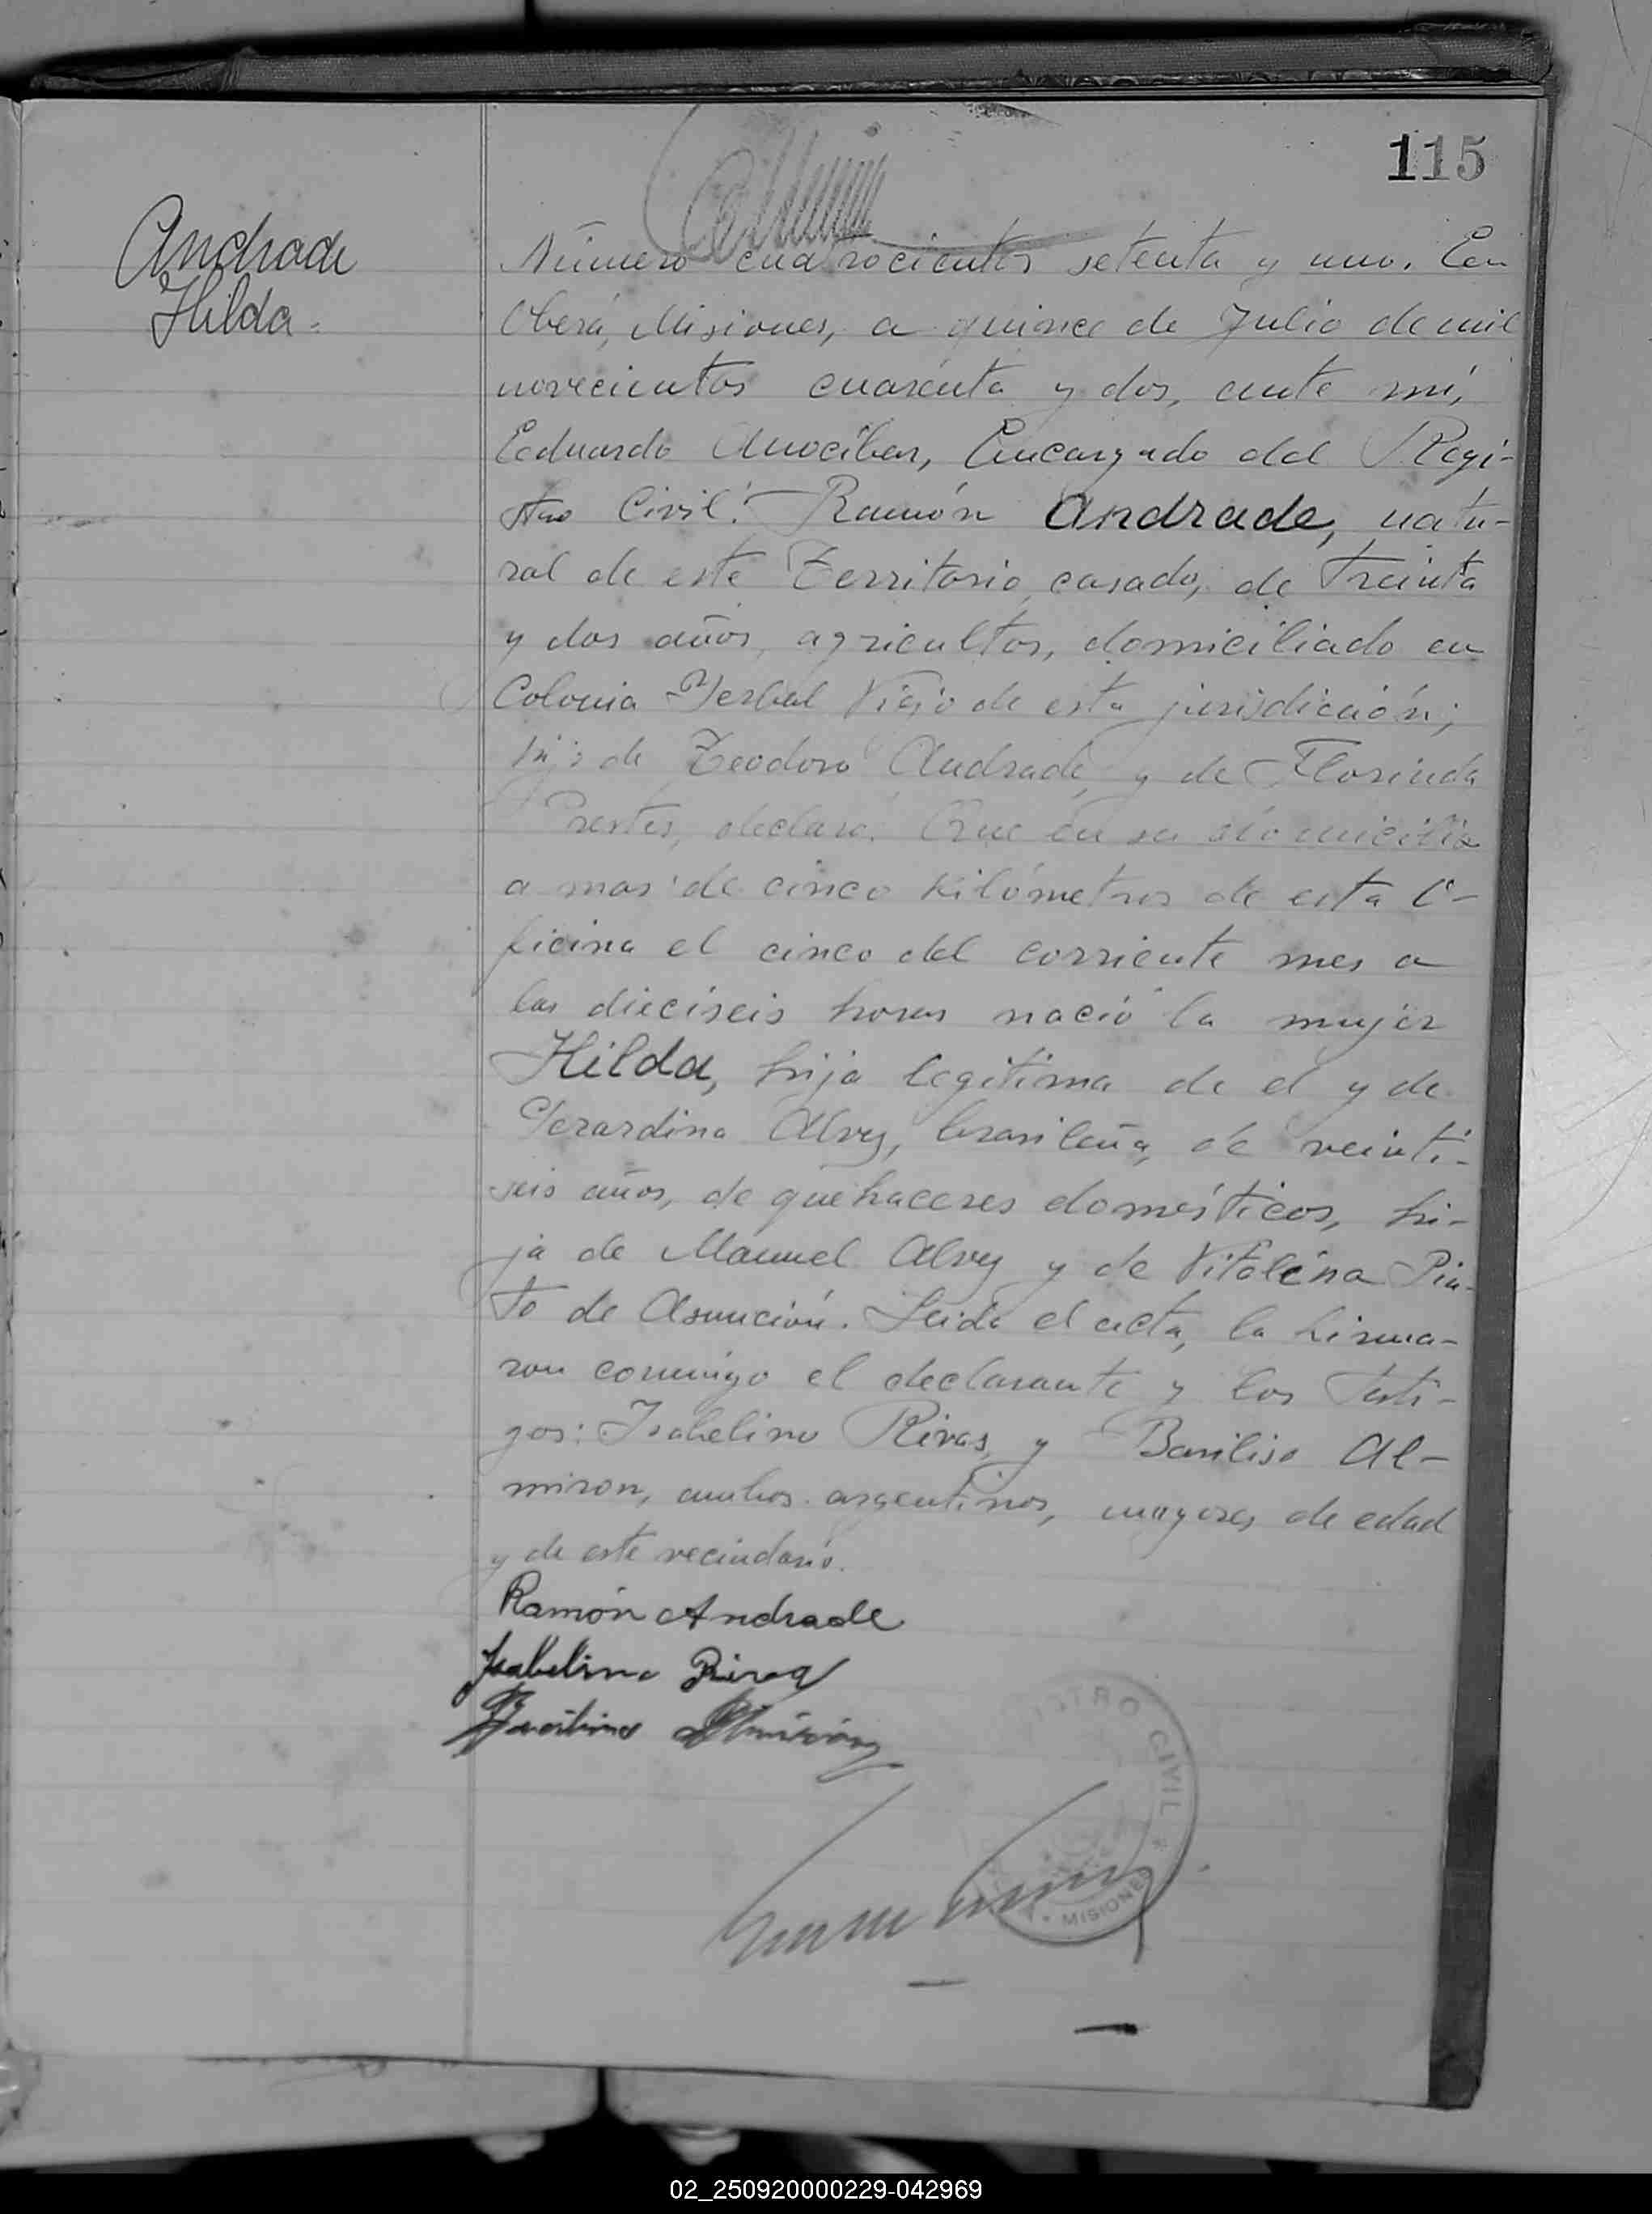 115
Andrade
Hilda.
Número cuatrocientos setenta y uno. En
Oberá, Misiones, a quince de Julio de mil
novecientos cuarenta y dos, ante mí,
Eduardo Anocíbar, Encargado del Regi-
stro Civil: Ramón Andrade, natu-
ral de este Territorio, casado, de treinta
y dos años, agricultor, domiciliado en
Colonia Yerbal Viejo de esta jurisdicción;
hijo de Teodoro Andrade y de Florinda
Prestes, declara: Que en su domicilio
a mas de cinco kilómetros de esta O-
ficina el cinco del corriente mes a
las dieciseis horas nació la mujer
Hilda, hija legitima de el y de
Gerardina Alves, brasileña, de veinti-
seis años, de quehaceres domésticos, hi-
ja de Manuel Alves y de Vitalina Pin-
to de Asunción. Leida el acta, la firma-
ron conmigo el declarante y los testi-
gos: Isabelino Rivas, y Basiliso Al-
miron, ambos argentinos, mayores de edad
y de este vecindario.
Ramón Andrade
Isabelino Rivas
Almirón
REGISTRO CIVIL
MISIONES
02_250920000229-042969